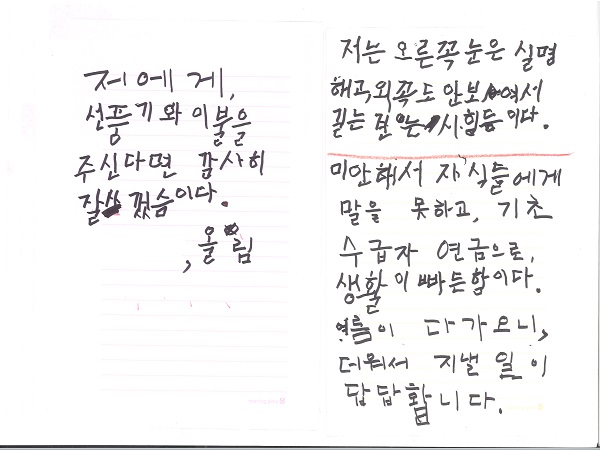 저에게,
선풍기와 이불을
주신다면 감사히
잘쓰겠슴이다.
올림
저는 오른쪽 눈은 실명
해고, 외쪽도 안보여서
힘듬이다.
미안해서 자식들에게
말을 못하고, 기초
수급자 연금으로,
생활이 빠든함이다.
여름이 다가오니,
더워서 지낼 일이
답답합니다.